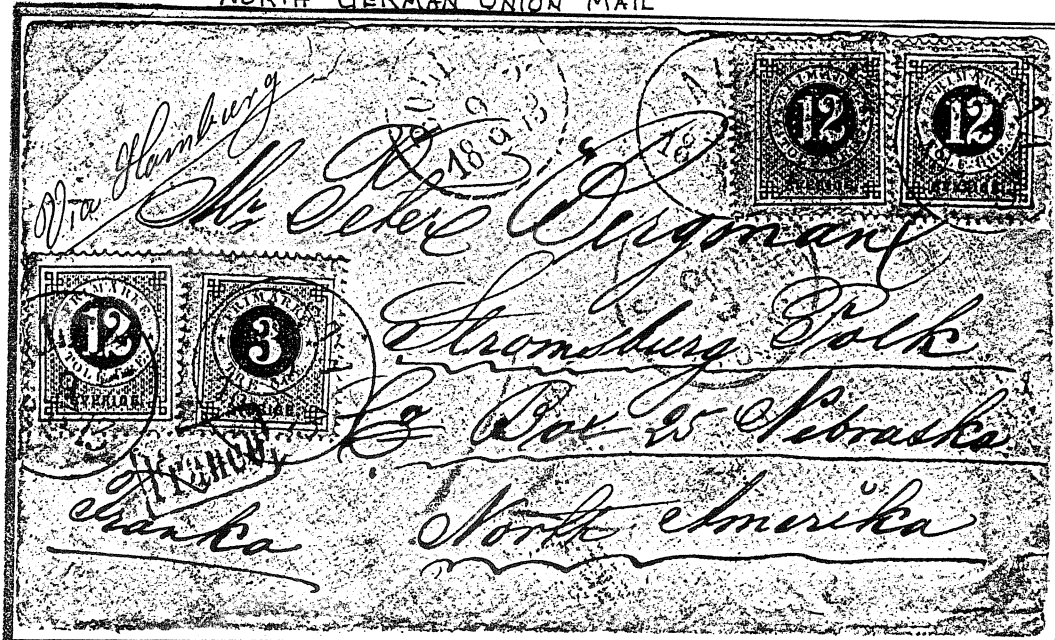 NORTH GERMAN UNION MAIL
Via Hamburg
Mr Peter Bergman
Stromsburg Polk
Co Box 25 Nebraska
North Amerika
Franko
FRANCO
FRIMÄRKE
12
TOLF ÖRE
SVERIGE
FRIMÄRKE
12
TOLF ÖRE
SVERIGE
FRIMÄRKE
12
TOLF ÖRE
SVERIGE
FRIMÄRKE
3
TRE ÖRE
SVERIGE
9
18